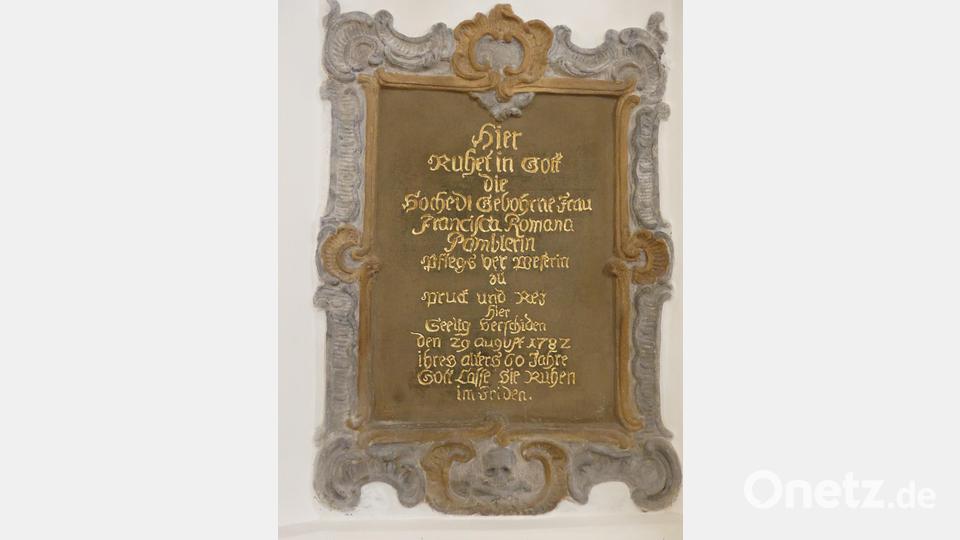 Hier
Ruhet in Gott
die
Hochedl Gebohrne Frau
Francisca Romana
Pämblerin
Pflegs ver Weserin
zu
Pruck und Rez
Hier
Seelig Verschiden
den 29 august 1782
ihres alters 60 Jahre
Gott Lasse Sie Ruhen
im Friden.
Onetz.de